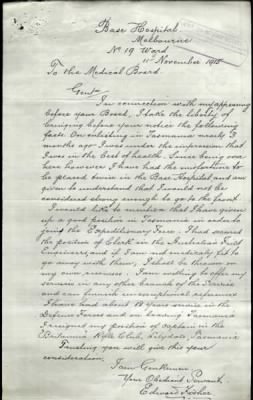 Base Hospital
Melbourne
No 19 Ward
11th November 1915
To the Medical Board
Gents
In connection with my appearing
before your Board, I take the liberty of
bringing before your notice the following
facts. On enlisting in Tasmania nearly 3
months ago I was under the impression that
I was in the best of health. Since being over
here however I have had the misfortune to
be placed twice in the Base Hospital and am
given to understand that I would not be
considered strong enough to go to the front
I would like to mention that I have given
up a good position in Tasmania in order to
join the Expeditionary Force. I had secured
the position of Clerk in the Australian Field
Engineers, and if I am not medically fit to
go away with them, I shall be thrown on
my own resources. I am willing to offer my
services in any other branch of the Service
and can furnish exceptional references
I have had about 12 years service in the
Defence Forces and on leaving Tasmania
I resigned my position of captain in the
Rifle Club, Lilydale, Tasmania
Trusting you will give this your
consideration.
I am Gentlemen
Your Obedient Servant
Edward